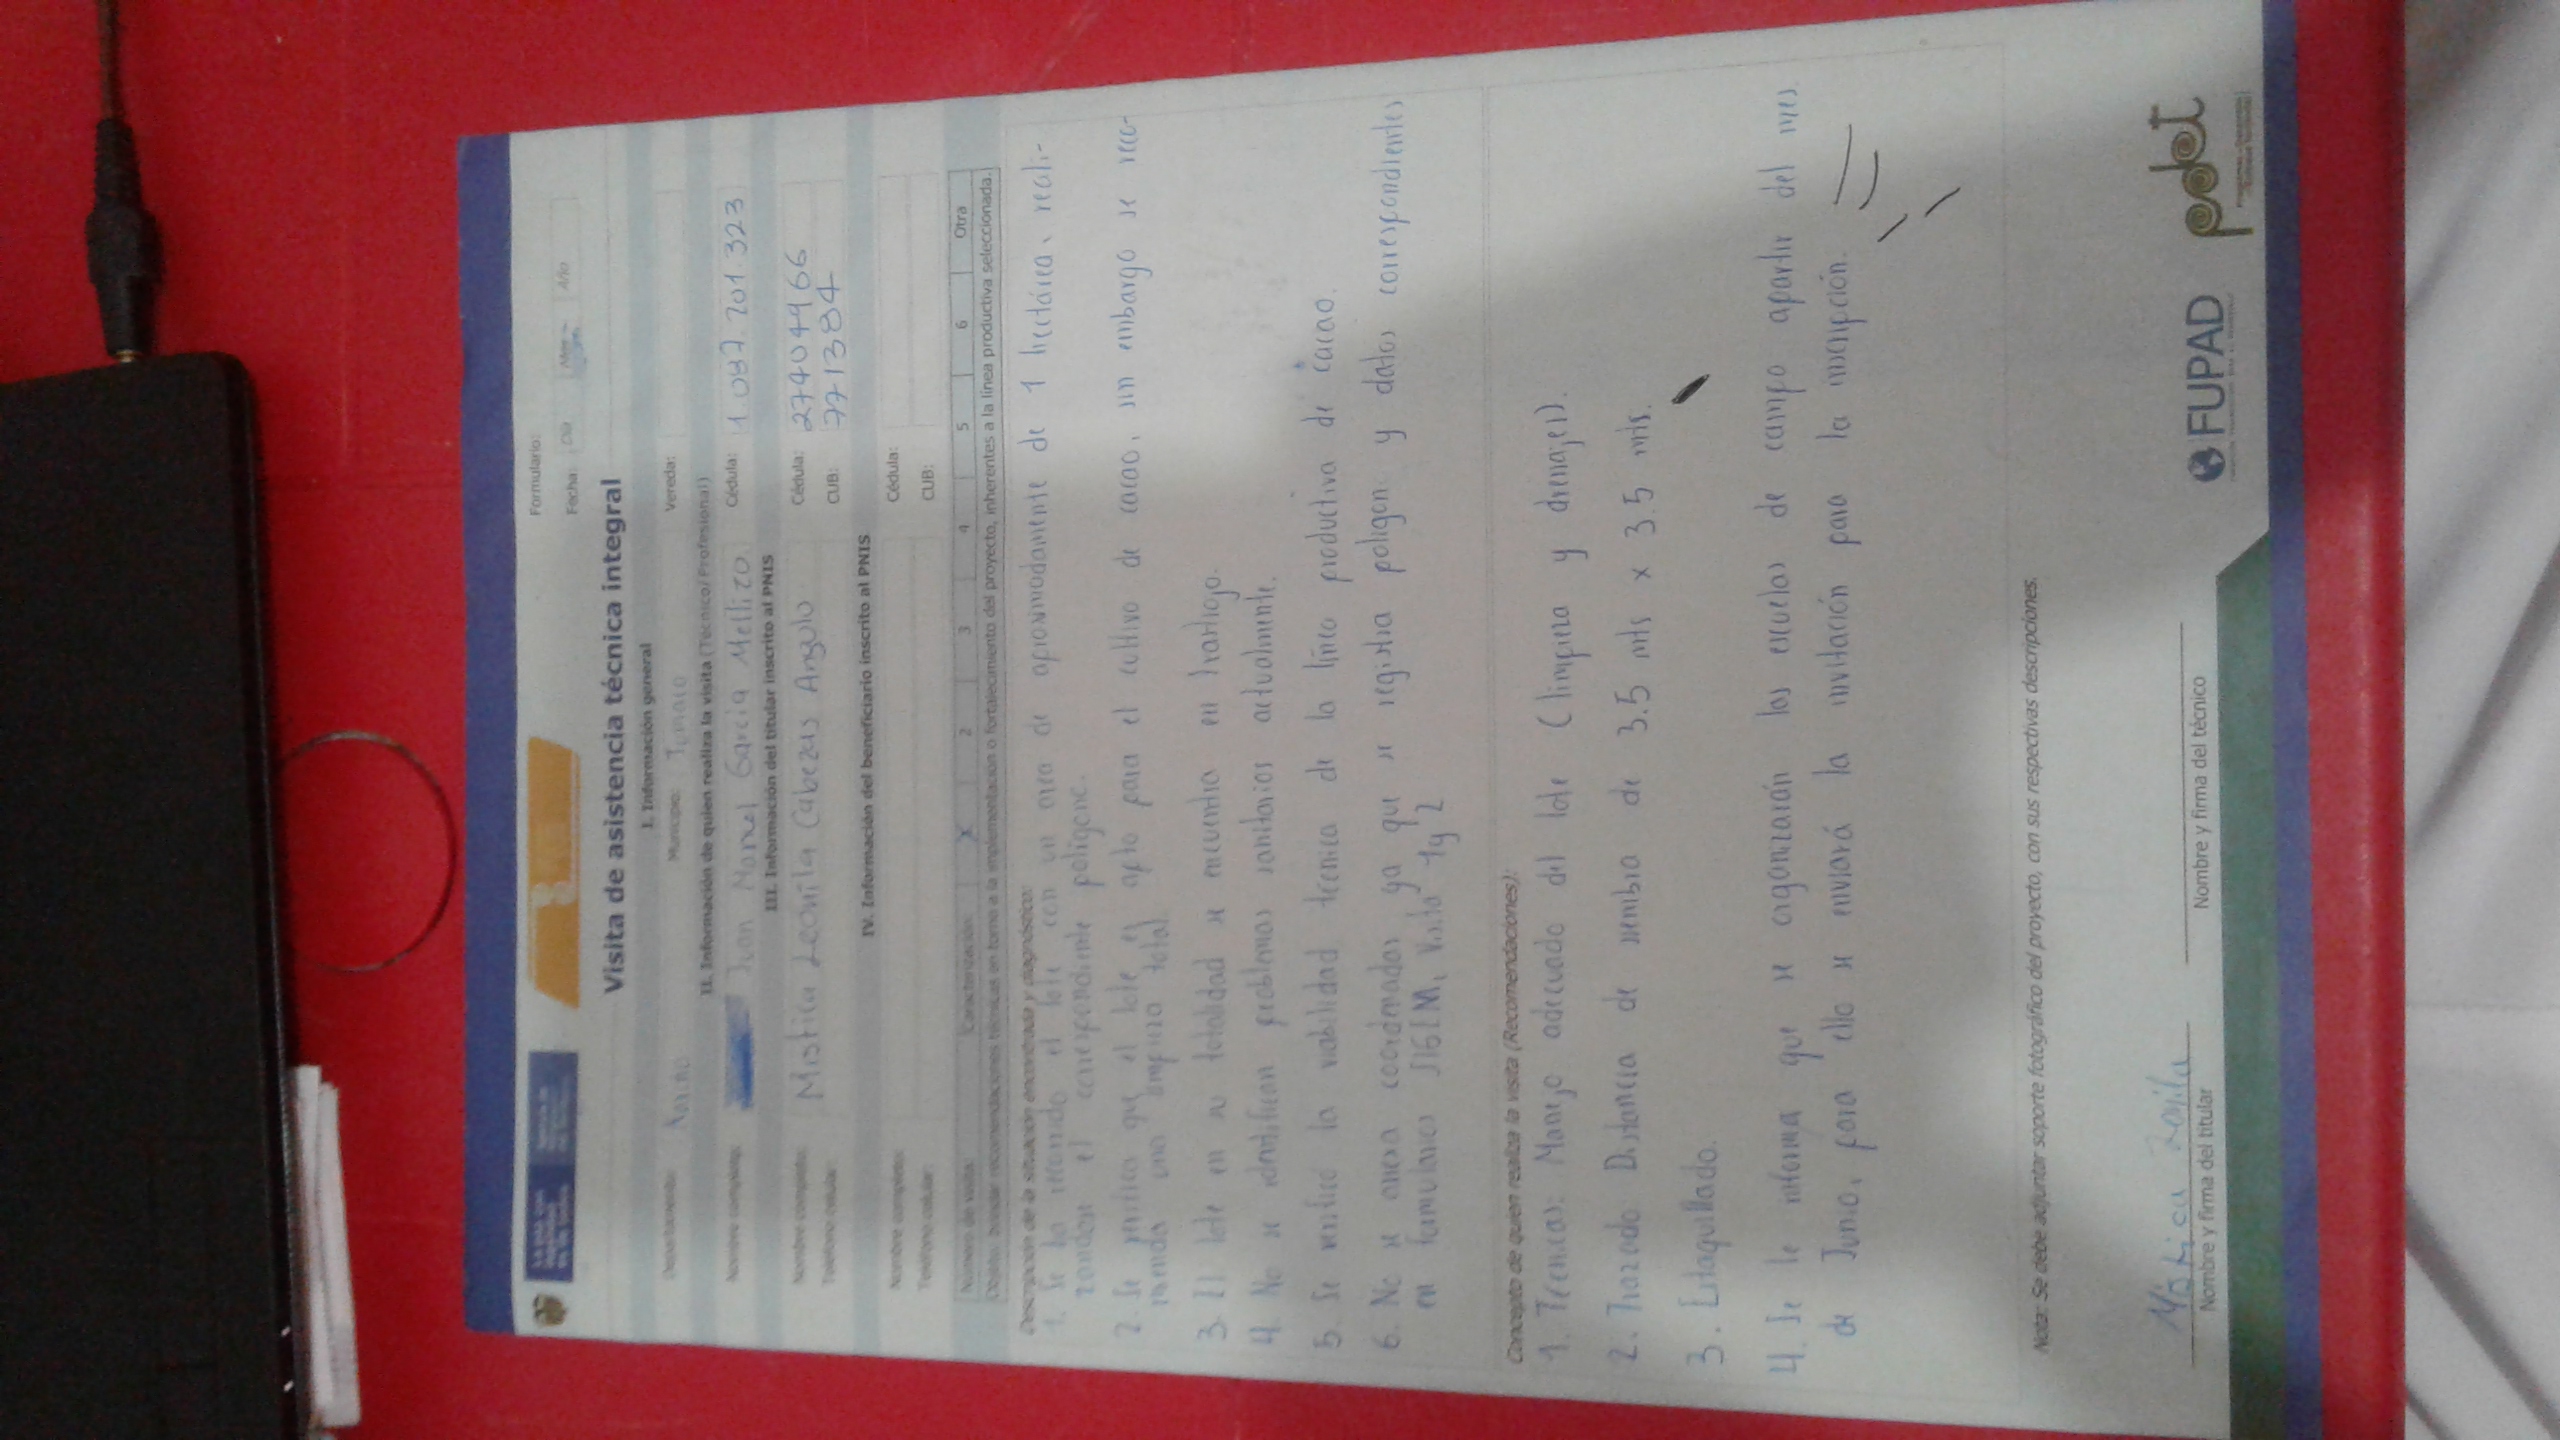 Formulario:
Fecha: Día Mes Año
Visita de asistencia técnica integral
I. Información general
Departamento: Nariño Municipio: Tumaco Vereda:
II. Información de quien realiza la visita (Técnico/Profesional)
Nombre completo: Juan Manuel García Mellizo Cédula: 1.087.201.323
III. Información del titular inscrito al PNIS
Nombre completo: Mistica Leonila Cabezas Angulo Cédula: 27404966
Teléfono celular: CUB: 771384
IV. Información del beneficiario inscrito al PNIS
Nombre completo: Cédula:
Teléfono celular: CUB:
Número de visita: Caracterización: X 2 3 4 5 6 Otra
Objeto: brindar recomendaciones técnicas en torno a la implementación o fortalecimiento del proyecto, inherentes a la línea productiva seleccionada.
Descripción de la situación encontrada y diagnóstico:
1. Se ha recorrido el lote con un area de aproximadamente de 1 hectárea, reali-
zandose el correspondiente poligono.
2. Se verifica que el lote es apto para el cultivo de cacao, sin embargo se reco-
mienda una limpieza total.
3. El lote en su totalidad se encuentra en rastrojo.
4. No se identifican problemas sanitarios actualmente.
5. Se verificó la viabilidad tecnica de la línea productiva de cacao.
6. No se anexa coordenadas ya que se registra poligon y datos correspondientes
en formularios SIGEM, Visita 1 y 2
Concepto de quien realiza la visita (Recomendaciones):
1. Tecnicas: Manejo adecuado del lote (limpieza y drenajes).
2. Trazado: Distancia de siembra de 3.5 mts x 3.5 mts.
3. Estaquillado.
4. Se le informa que se organizarán las escuelas de campo apartir del mes
de Junio, para ello se enviará la invitación para la inscripción.
Nota: Se debe adjuntar soporte fotográfico del proyecto, con sus respectivas descripciones.
Mistica Leonila
Nombre y firma del titular Nombre y firma del técnico
FUPAD pdet